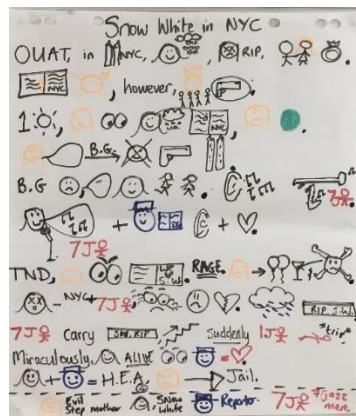 Snow White in NYC
OUAT, in NYC, RIP,
NYC, however,
1
B.G.
B.G
7J
+ C + .
7J
TND, RAGE.
- NYC + 7J
7J Carry S.W. RIP Suddenly 1J *trip*
Miraculously, ALIVE =
+ = H.E.A Jail.
Evil Step mother Snow White Reporter 7J 7 jazz men